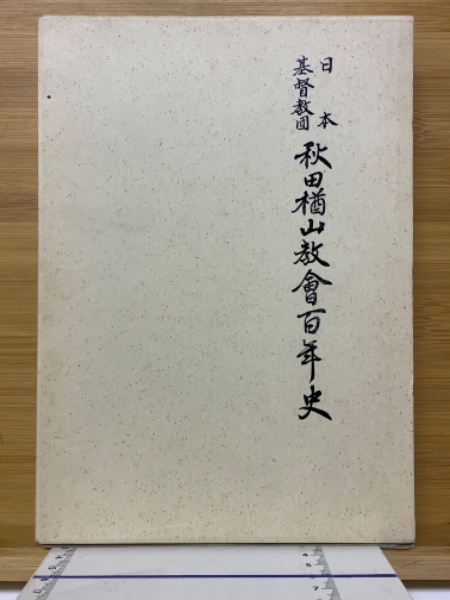 日本
基督教団
秋田楢山教會百年史